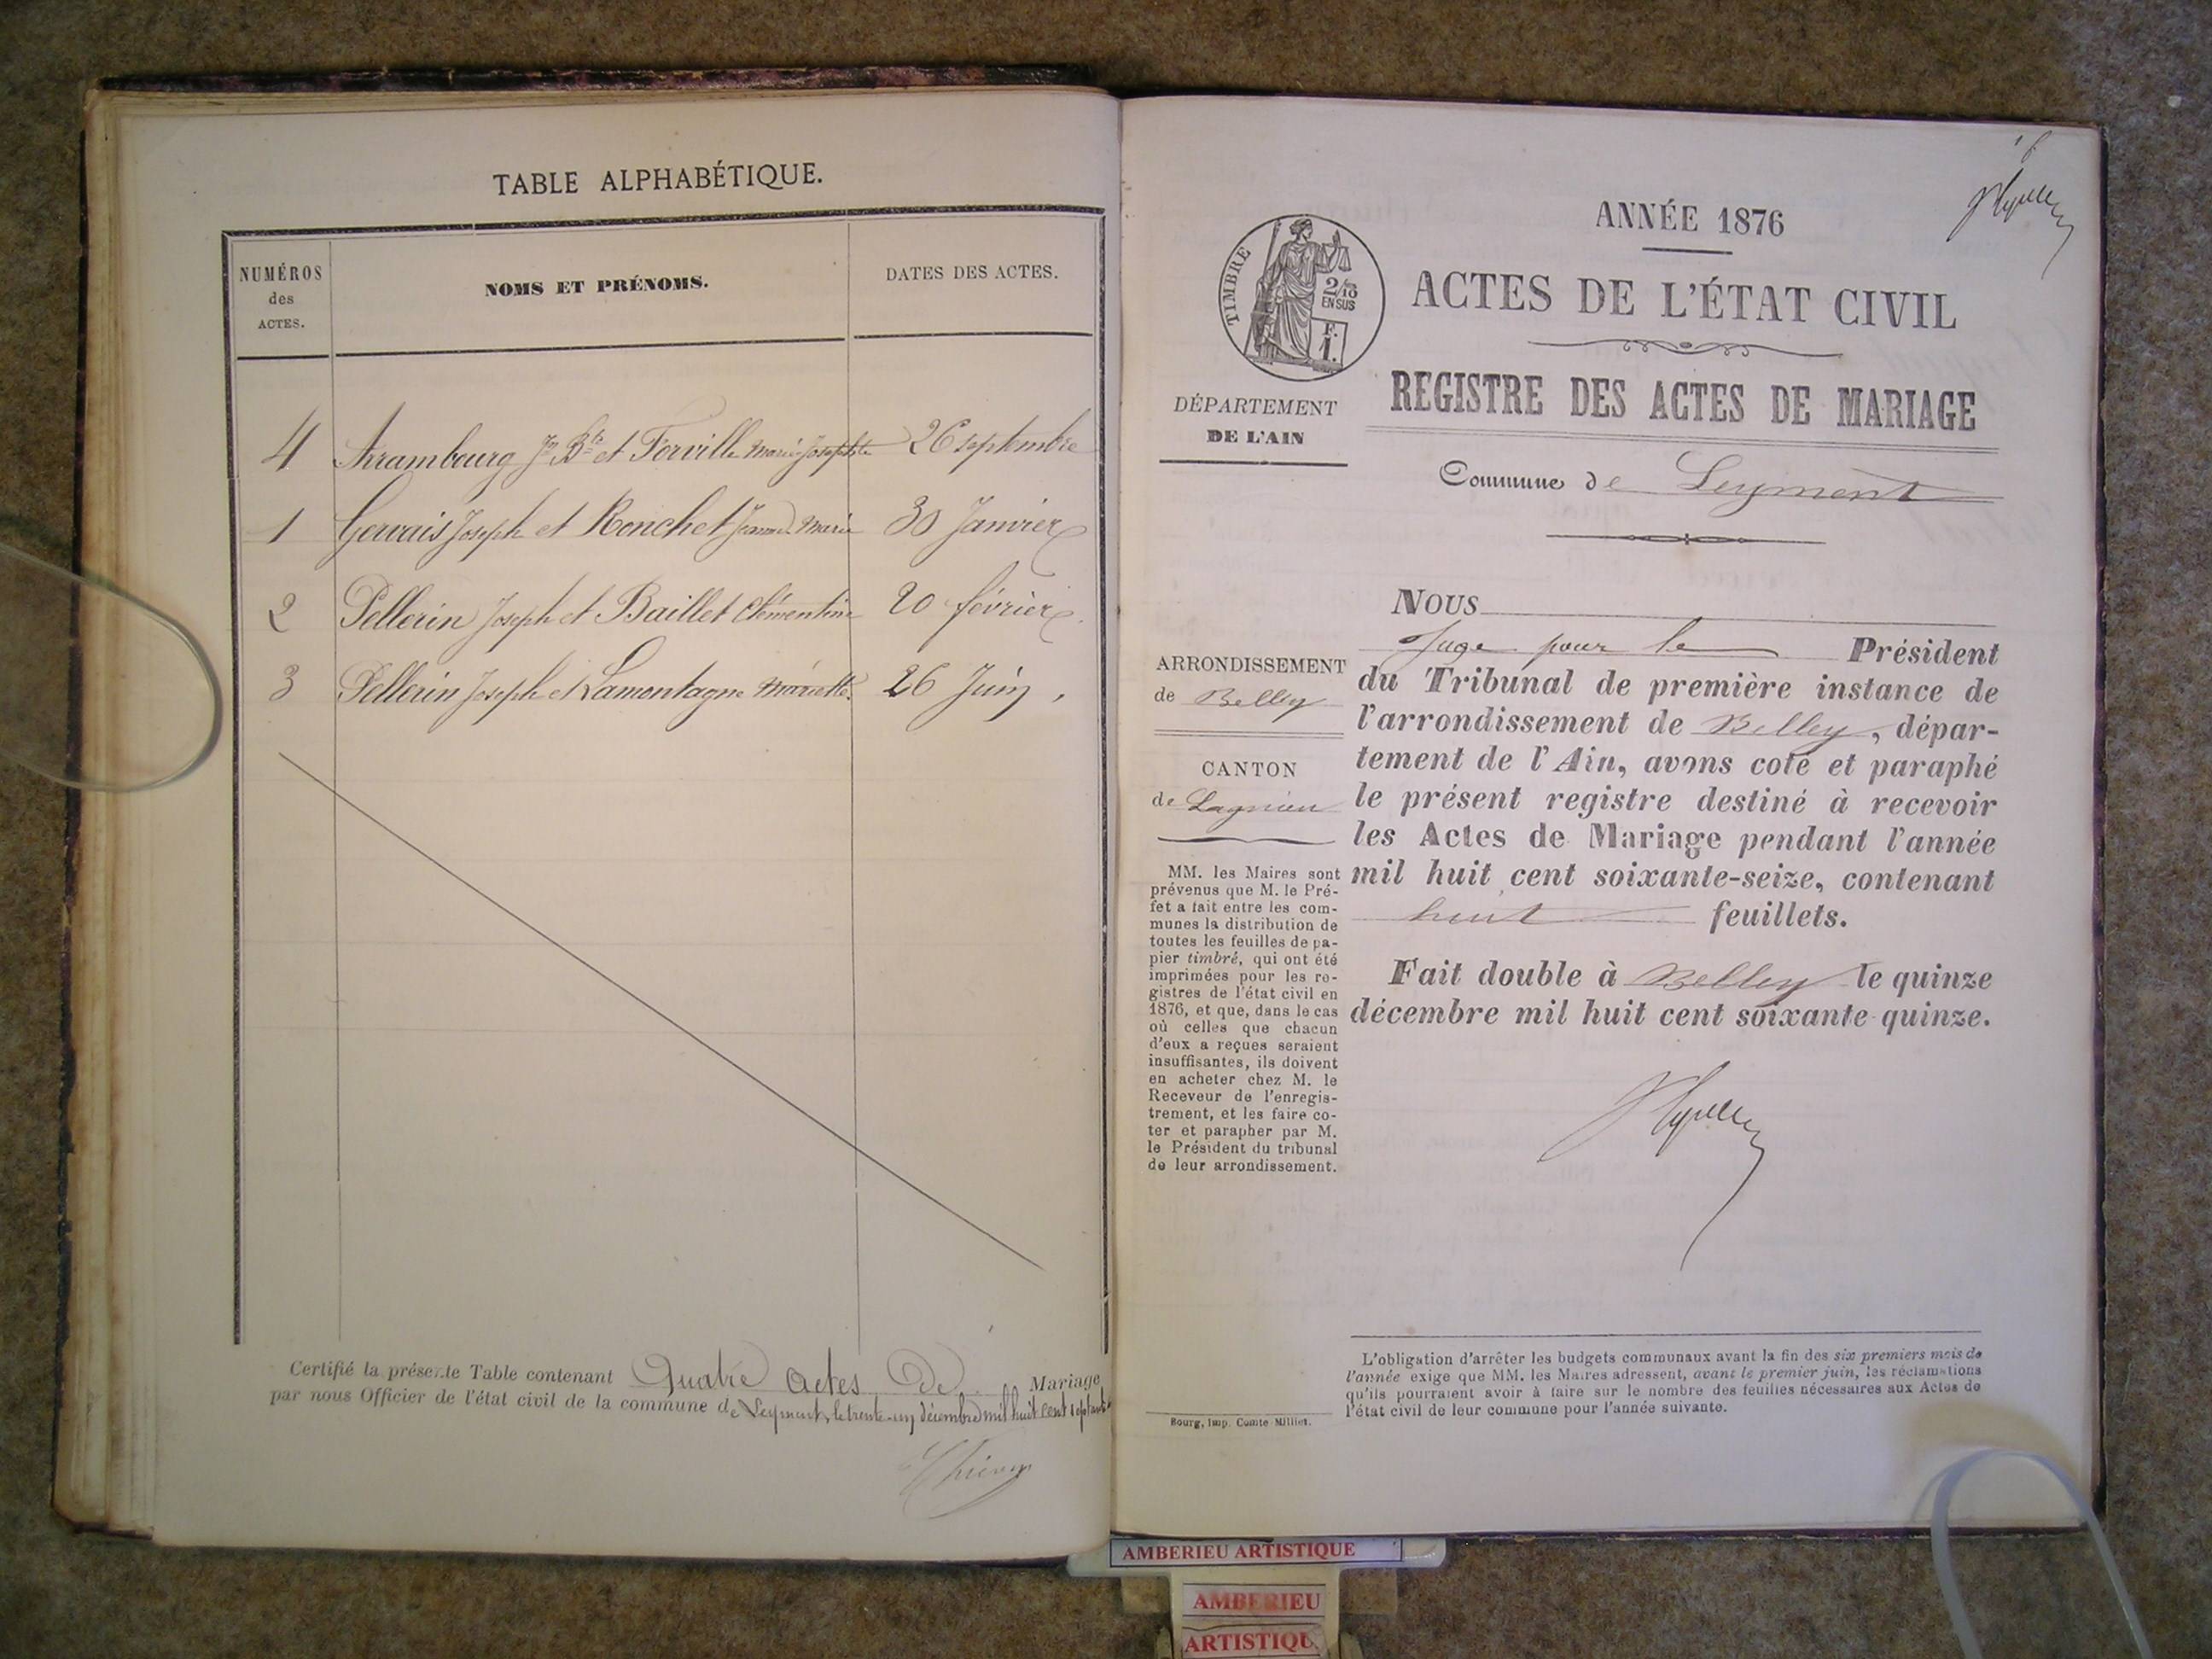 TABLE ALPHABÉTIQUE.
NUMÉROS
des
ACTES.
NOMS ET PRÉNOMS.
DATES DES ACTES.
4 Arrambourg Jn Bte et Forville Marie Josephte 26 septembre
1 Gervais Joseph et Ronchet Jeanne Marie 30 Janvier
2 Pellerin Joseph et Baillet Clémentine 20 février
3 Pellerin Joseph et Lamontagne Mariette 26 Juin
Certifié la présente Table contenant Quatre actes De Mariage
par nous Officier de l'état civil de la commune de Leyment, le trente-un décembre mil huit cent septante
ANNÉE 1876
TIMBRE
2/10
EN SUS
F.
1.
ACTES DE L'ÉTAT CIVIL
REGISTRE DES ACTES DE MARIAGE
DÉPARTEMENT
DE L'AIN
Commune de Leyment
ARRONDISSEMENT
de Belley
CANTON
de Lagnieu
MM. les Maires sont
prévenus que M. le Pré-
fet a fait entre les com-
munes la distribution de
toutes les feuilles de pa-
pier timbré, qui ont été
imprimées pour les re-
gistres de l'état civil en
1876, et que, dans le cas
où celles que chacun
d'eux a reçues seraient
insuffisantes, ils doivent
en acheter chez M. le
Receveur de l'enregis-
trement, et les faire co-
ter et parapher par M.
le Président du tribunal
de leur arrondissement.
NOUS
Juge pour le Président
du Tribunal de première instance de
l'arrondissement de Belley, dépar-
tement de l'Ain, avons coté et paraphé
le présent registre destiné à recevoir
les Actes de Mariage pendant l'année
mil huit cent soixante-seize, contenant
huit feuillets.
Fait double à Belley le quinze
décembre mil huit cent soixante-quinze.
L'obligation d'arrêter les budgets communaux avant la fin des six premiers mois de
l'année exige que MM. les Maires adressent, avant le premier juin, les réclamations
qu'ils pourraient avoir à faire sur le nombre des feuilles nécessaires aux Actes de
l'état civil de leur commune pour l'année suivante.
Bourg, Imp. Comte Milliet.
AMBERIEU ARTISTIQUE
AMBERIEU
ARTISTIQU